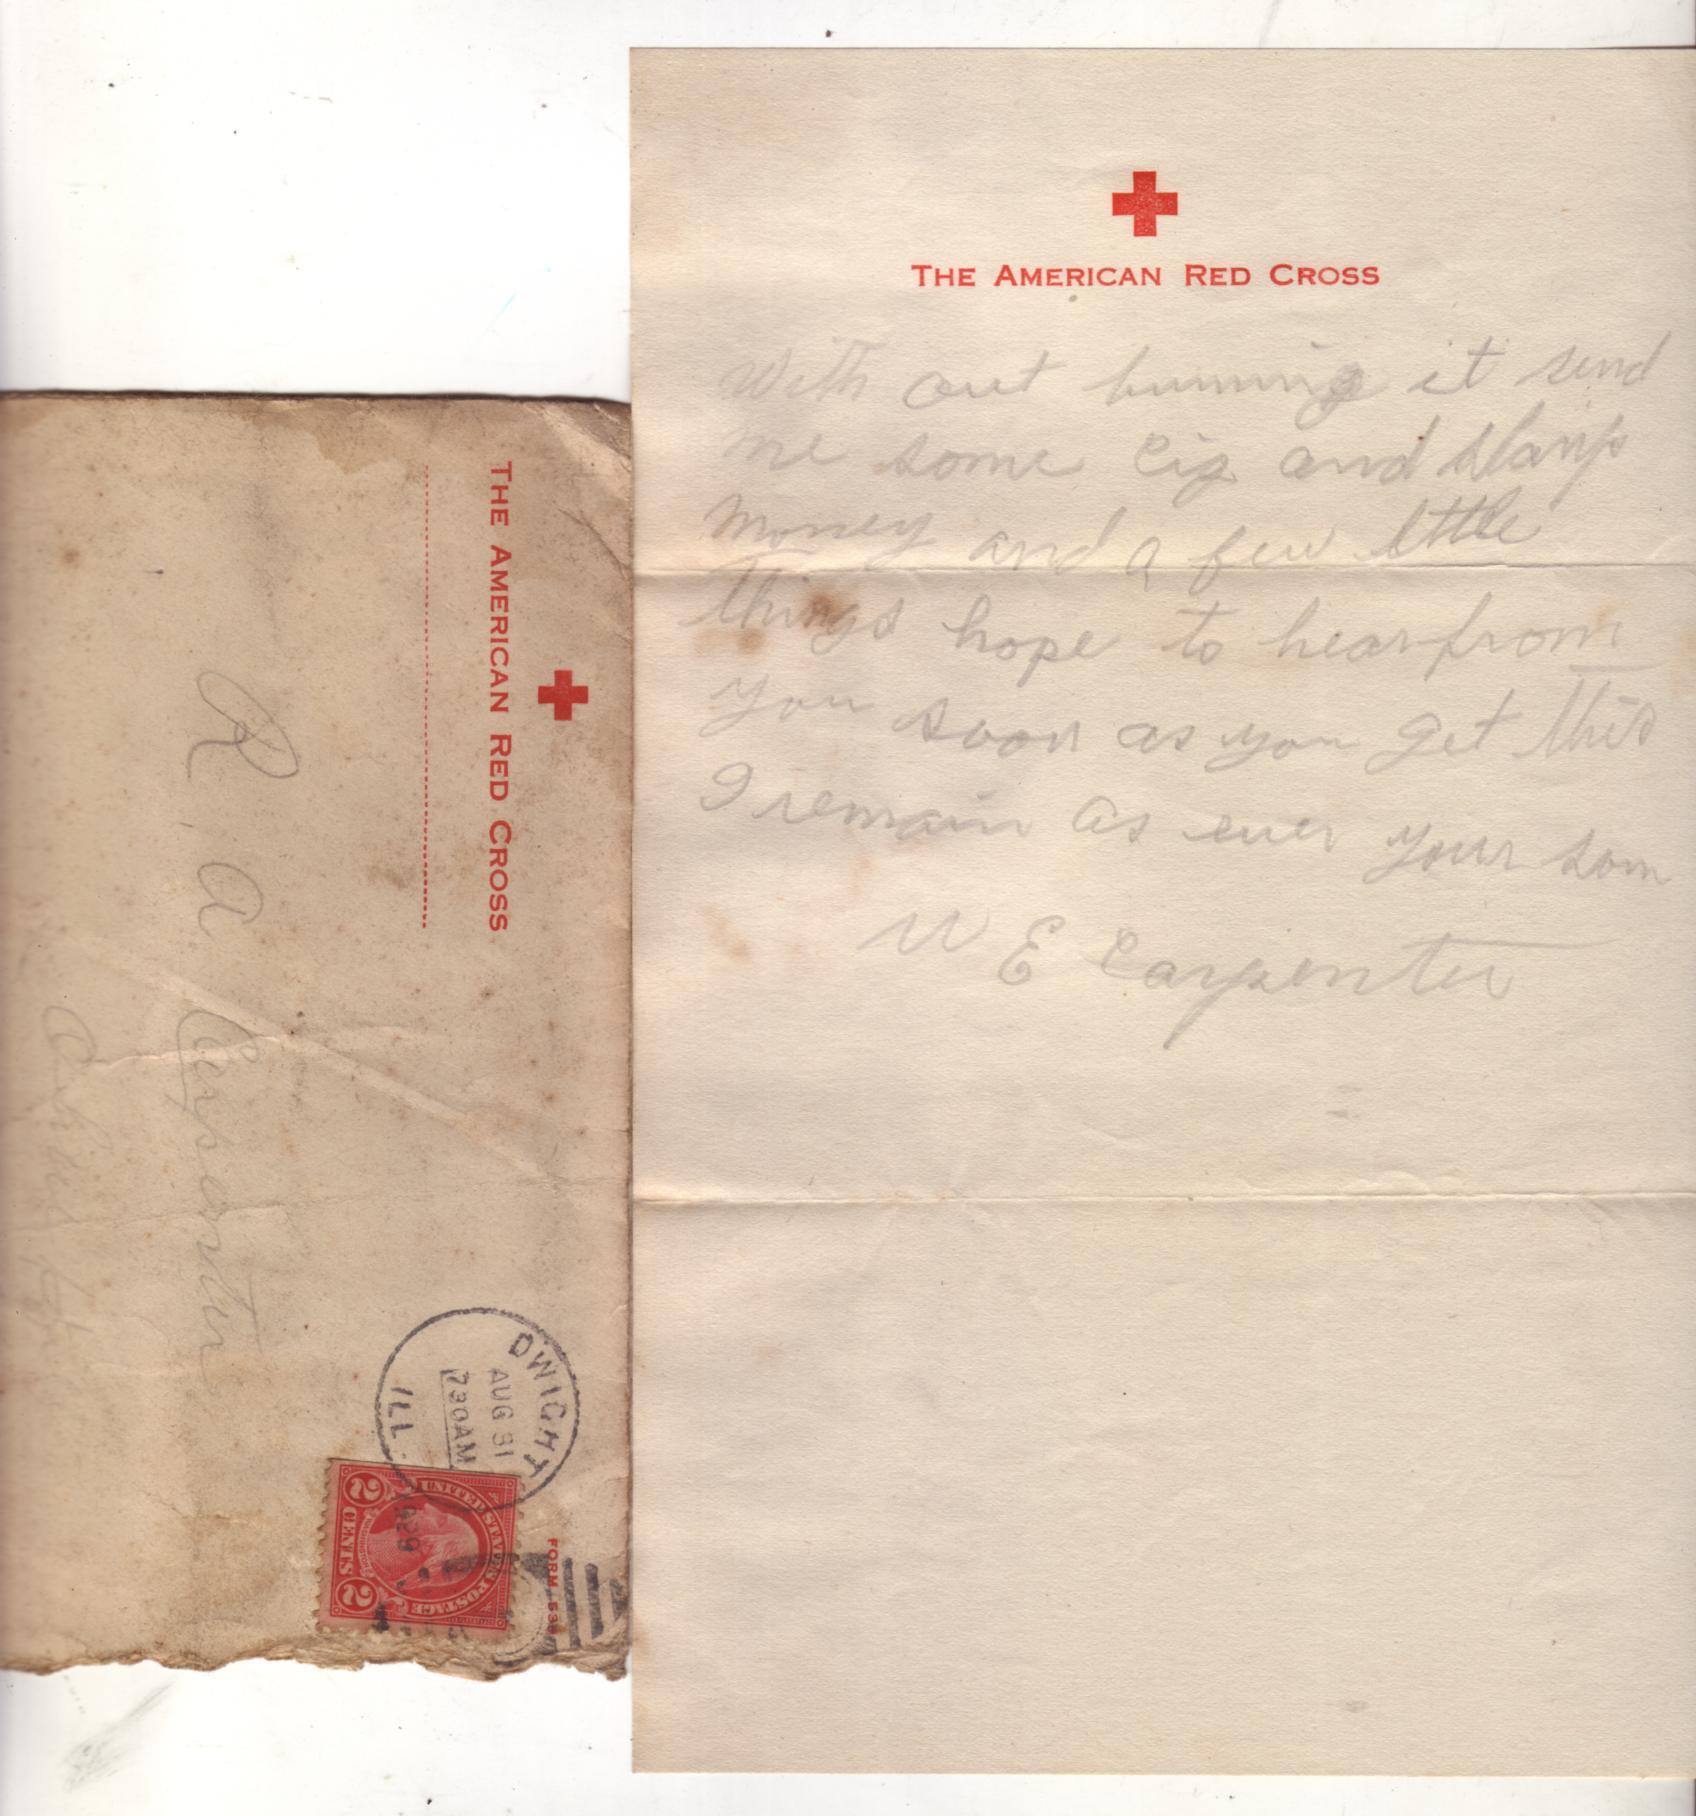 THE AMERICAN RED CROSS
With out buming it send
me some Cig and stamps
money and a few little
things hope to hear from
you soon as you get this
I remain as ever your son
W E Carpenter
THE AMERICAN RED CROSS
R. A Carpenter
DWIGHT
AUG 31
730AM
1929
ILL.
UNITED STATES POSTAGE
2 CENTS 2
FORM 539